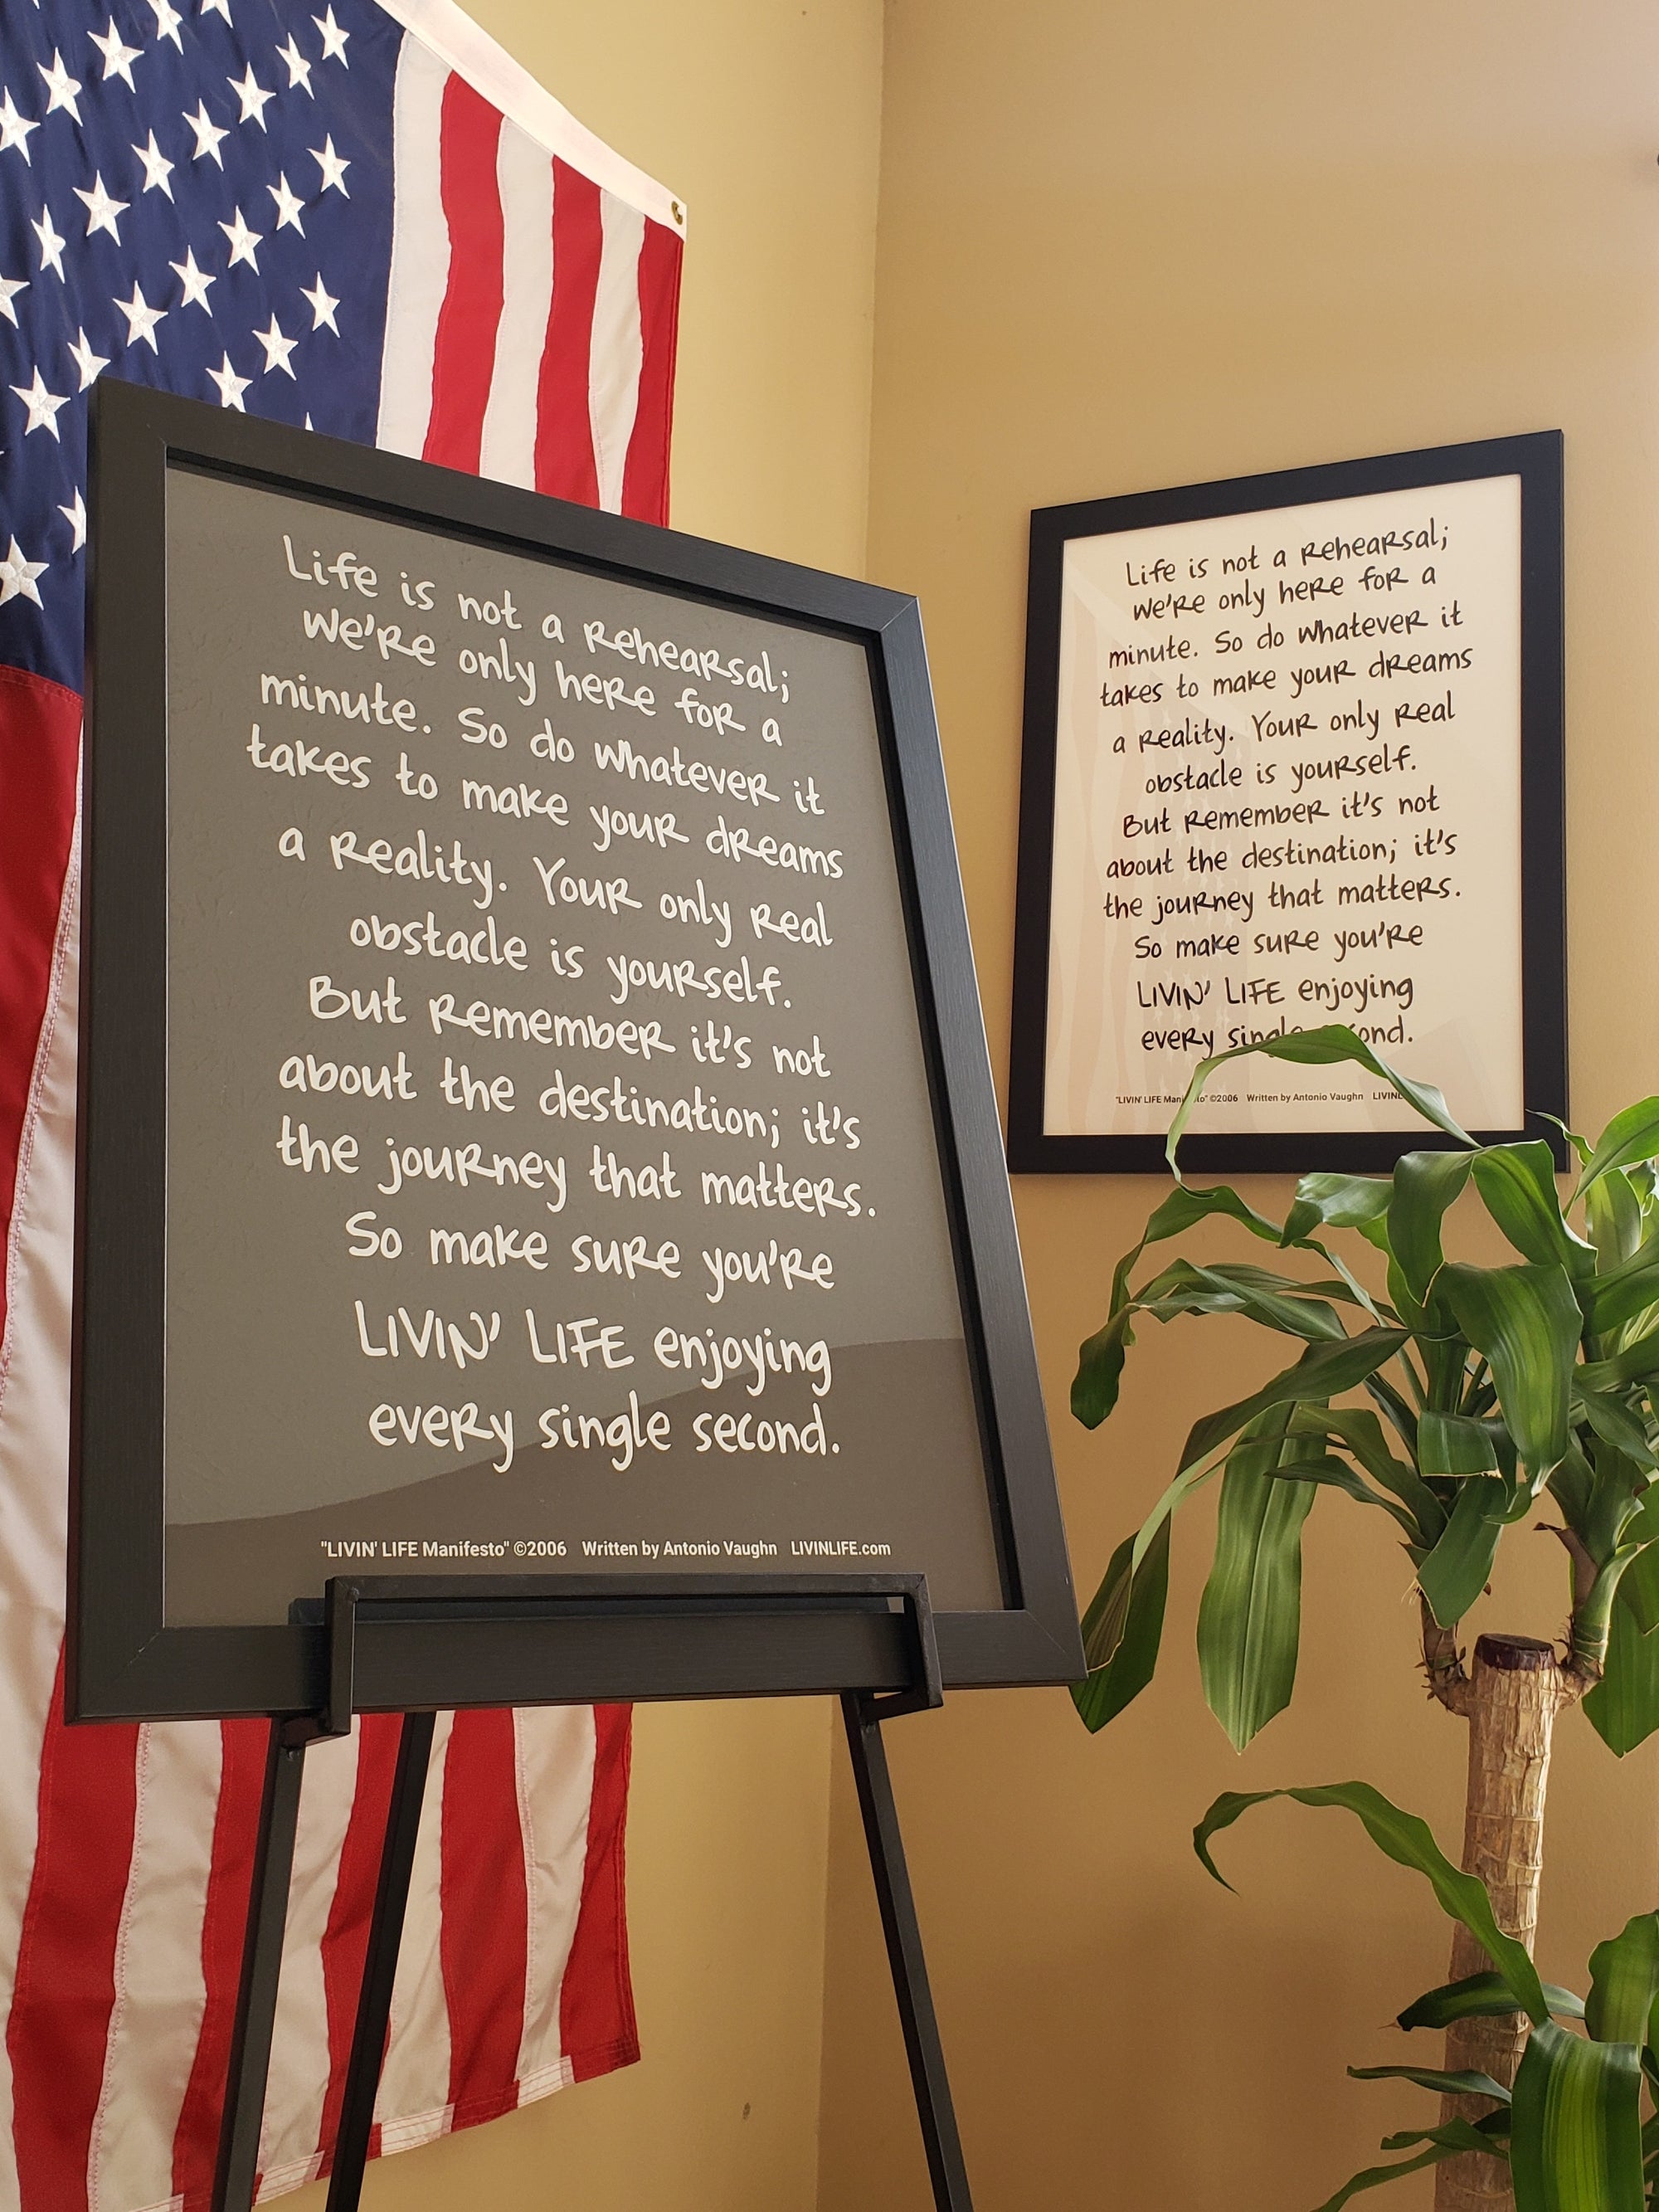 Life is not a rehearsal;
we're only here for a
minute. So do whatever it
takes to make your dreams
a reality. Your only real
obstacle is yourself.
But remember it's not
about the destination; it's
the journey that matters.
So make sure you're
LIVIN' LIFE enjoying
every single second.
"LIVIN' LIFE Manifesto" ©2006 Written by Antonio Vaughn LIVINLIFE.com
Life is not a rehearsal;
we're only here for a
minute. So do whatever it
takes to make your dreams
a reality. Your only real
obstacle is yourself.
But remember it's not
about the destination; it's
the journey that matters.
So make sure you're
LIVIN' LIFE enjoying
every
"LIVIN' LIFE ©2006 Written by Antonio Vaughn